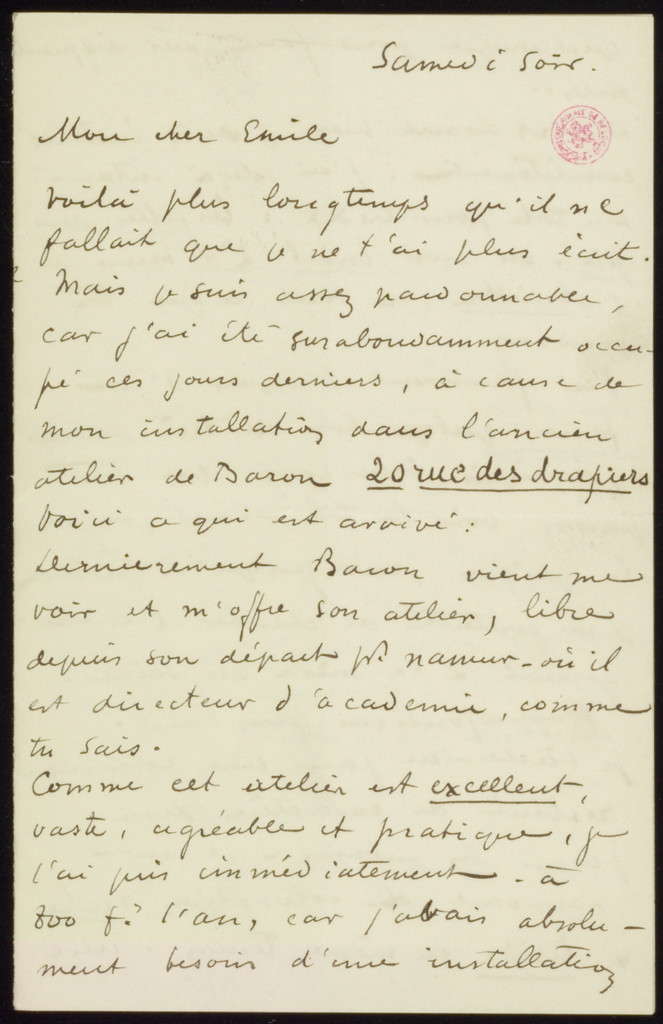 Samedi soir.
Mon cher Emile
Voilà plus longtemps qu'il ne
fallait que je ne t'ai plus écrit.
Mais je suis assez pardonnable,
car j'ai été surabondamment occu-
pé ces jours derniers, à cause de
mon installation dans l'ancien
atelier de Baron 20 rue des drapiers
Voici ce qui est arrivé :
Dernièrement Baron vient me
voir et m'offre son atelier, libre
depuis son départ pr namur - où il
est directeur d'académie, comme
tu sais.
Comme cet atelier est excellent,
vaste, agréable et pratique, je
l'ai pris immédiatement - à
700 f. l'an, car j'avais absolu-
ment besoin d'une installation